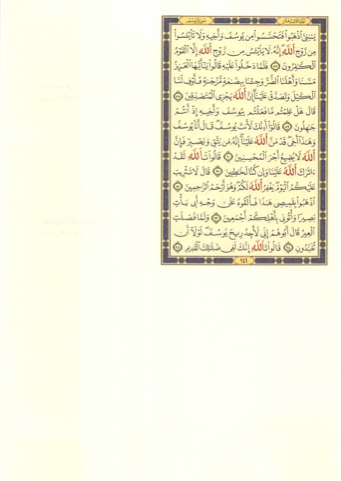 يَٰبَنِىَّ ٱذْهَبُوا۟ فَتَحَسَّسُوا۟ مِن يُوسُفَ وَأَخِيهِ وَلَا تَا۟يْـَٔسُوا۟
مِن رَّوْحِ ٱللَّهِ إِنَّهُۥ لَا يَا۟يْـَٔسُ مِن رَّوْحِ ٱللَّهِ إِلَّا ٱلْقَوْمُ
ٱلْكَٰفِرُونَ ٨٧ فَلَمَّا دَخَلُوا۟ عَلَيْهِ قَالُوا۟ يَٰٓأَيُّهَا ٱلْعَزِيزُ
مَسَّنَا وَأَهْلَنَا ٱلضُّرُّ وَجِئْنَا بِبِضَٰعَةٍ مُّزْجَىٰةٍ فَأَوْفِ لَنَا
ٱلْكَيْلَ وَتَصَدَّقْ عَلَيْنَآ إِنَّ ٱللَّهَ يَجْزِى ٱلْمُتَصَدِّقِينَ ٨٨
قَالَ هَلْ عَلِمْتُم مَّا فَعَلْتُم بِيُوسُفَ وَأَخِيهِ إِذْ أَنتُمْ
جَٰهِلُونَ ٨٩ قَالُوٓا۟ أَءِنَّكَ لَأَنتَ يُوسُفُ قَالَ أَنَا۠ يُوسُفُ
وَهَٰذَآ أَخِى قَدْ مَنَّ ٱللَّهُ عَلَيْنَآ إِنَّهُۥ مَن يَتَّقِ وَيَصْبِرْ فَإِنَّ
ٱللَّهَ لَا يُضِيعُ أَجْرَ ٱلْمُحْسِنِينَ ٩٠ قَالُوا۟ تَٱللَّهِ لَقَدْ
ءَاثَرَكَ ٱللَّهُ عَلَيْنَا وَإِن كُنَّا لَخَٰطِـِٔينَ ٩١ قَالَ لَا تَثْرِيبَ
عَلَيْكُمُ ٱلْيَوْمَ يَغْفِرُ ٱللَّهُ لَكُمْ وَهُوَ أَرْحَمُ ٱلرَّٰحِمِينَ ٩٢
ٱذْهَبُوا۟ بِقَمِيصِى هَٰذَا فَأَلْقُوهُ عَلَىٰ وَجْهِ أَبِى يَأْتِ
بَصِيرًا وَأْتُونِى بِأَهْلِكُمْ أَجْمَعِينَ ٩٣ وَلَمَّا فَصَلَتِ
ٱلْعِيرُ قَالَ أَبُوهُمْ إِنِّى لَأَجِدُ رِيحَ يُوسُفَ لَوْلَآ أَن
تُفَنِّدُونِ ٩٤ قَالُوا۟ تَٱللَّهِ إِنَّكَ لَفِى ضَلَٰلِكَ ٱلْقَدِيمِ ٩٥
٢٤٦